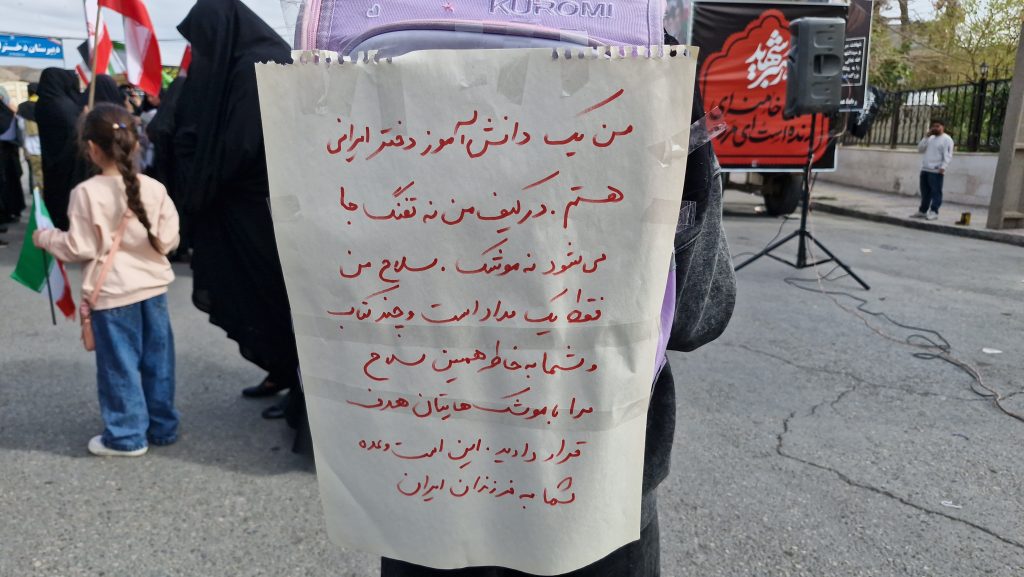 KUROMI
دبیرستان دخترانه
رهبر شهید
خامنه‌ای
زنده است ای
من یک دانش‌آموز دختر ایرانی
هستم. در کیف من نه تفنگ جا
می‌شود نه موشک. سلاح من
فقط یک مداد است و چند کتاب
و شما به خاطر همین سلاح
مرا با موشک هایتان هدف
قرار دادید. این است وعده
شما به فرزندان ایران